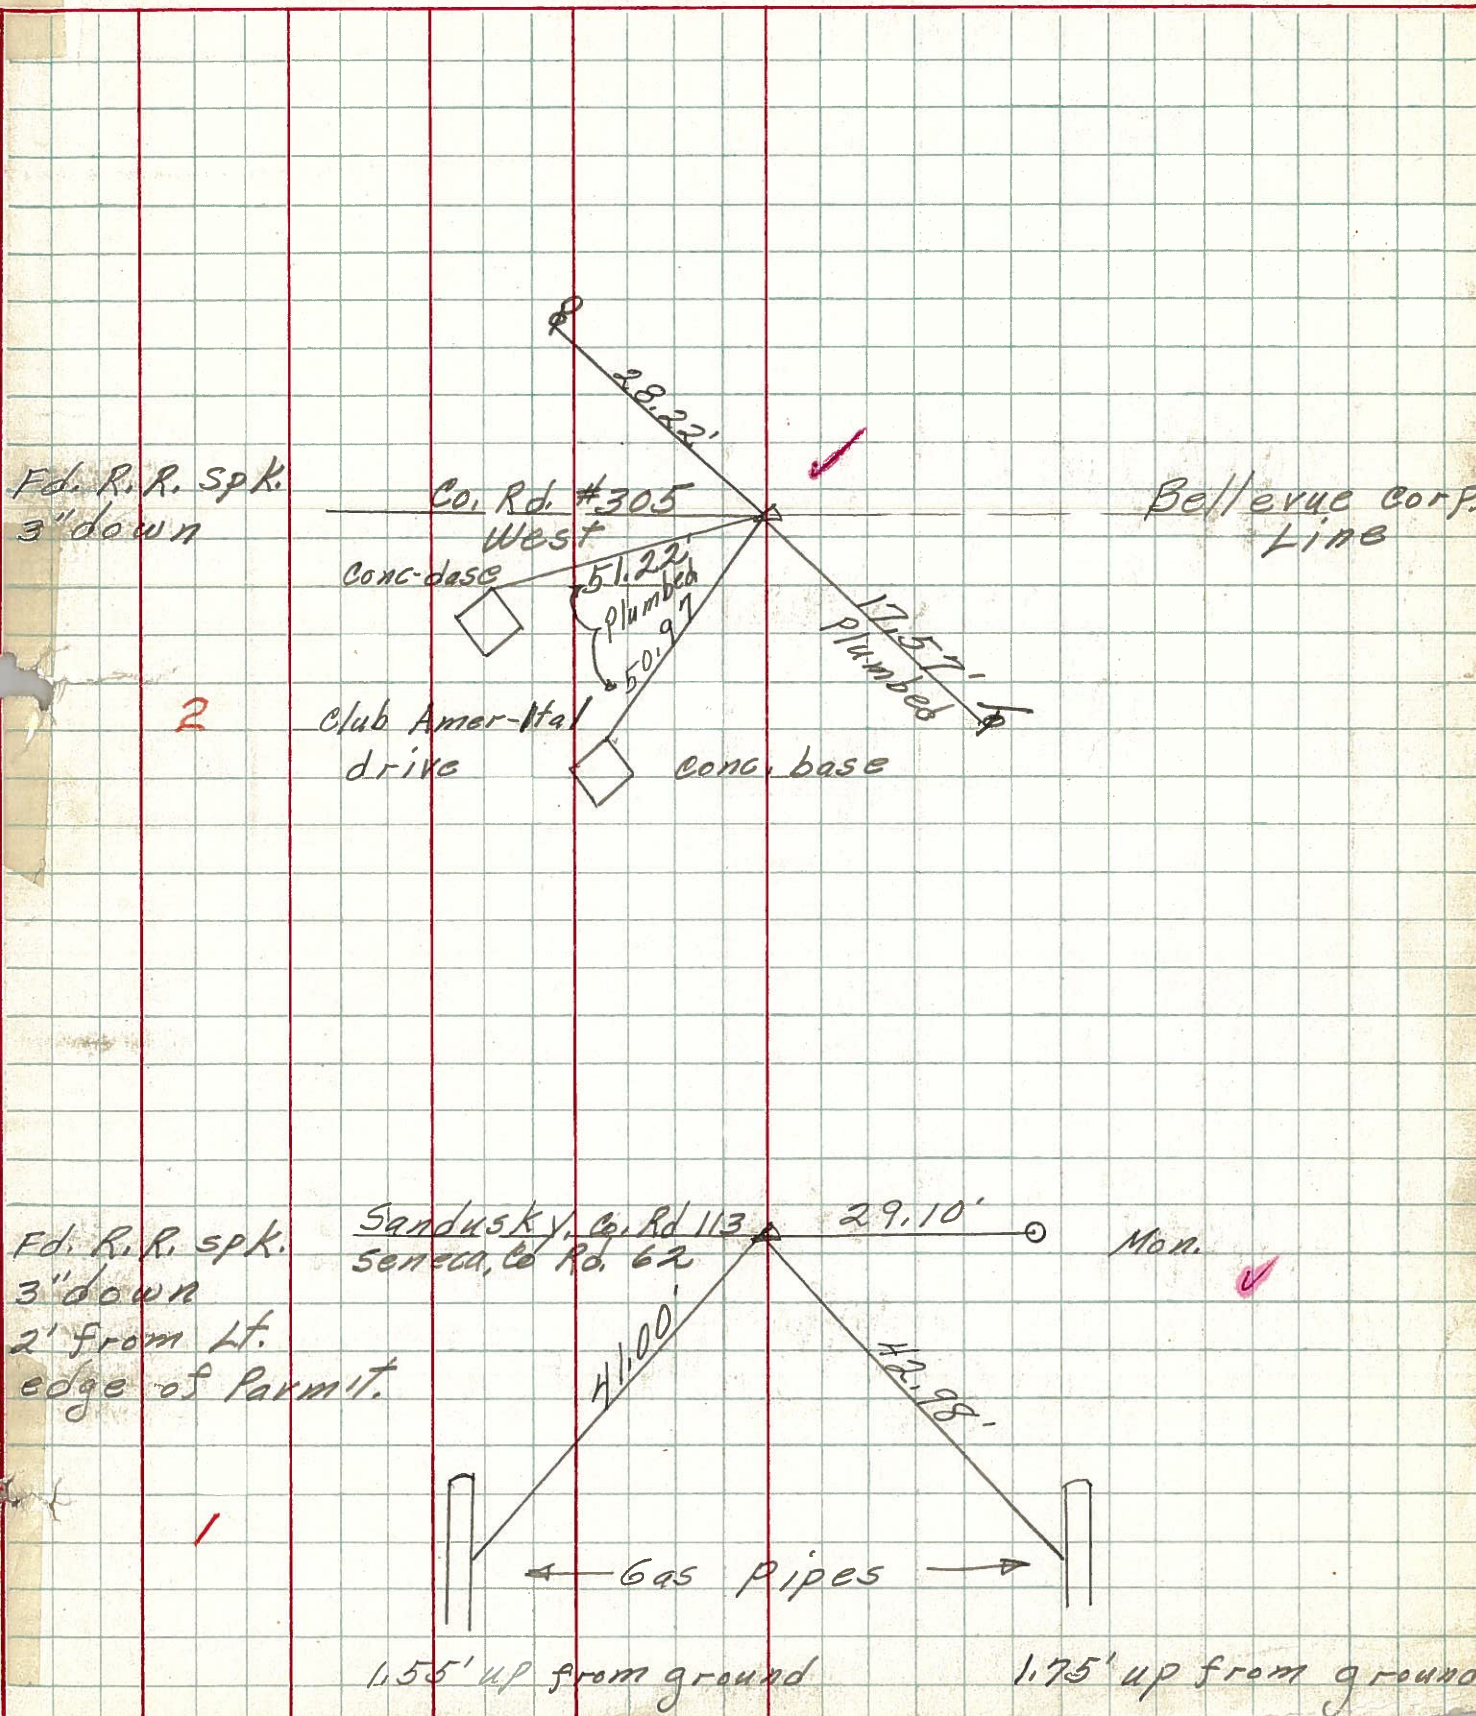 28.22'
Fd. R.R. spk.
3" down
Co. Rd. #305
West
Bellevue Corp.
Line
conc-dase
51.22'
Plumbed
50.97
17.57'
Plumbed
2
Club Amer-Ital
drive
conc. base
Fd. R.R. spk.
3" down
2' from Lt.
edge of Parmit.
Sandusky, Co. Rd 113
Seneca, Co Rd. 62
29.10'
Mon.
41.00'
42.98'
1
Gas Pipes
1.55' up from ground
1.75' up from ground